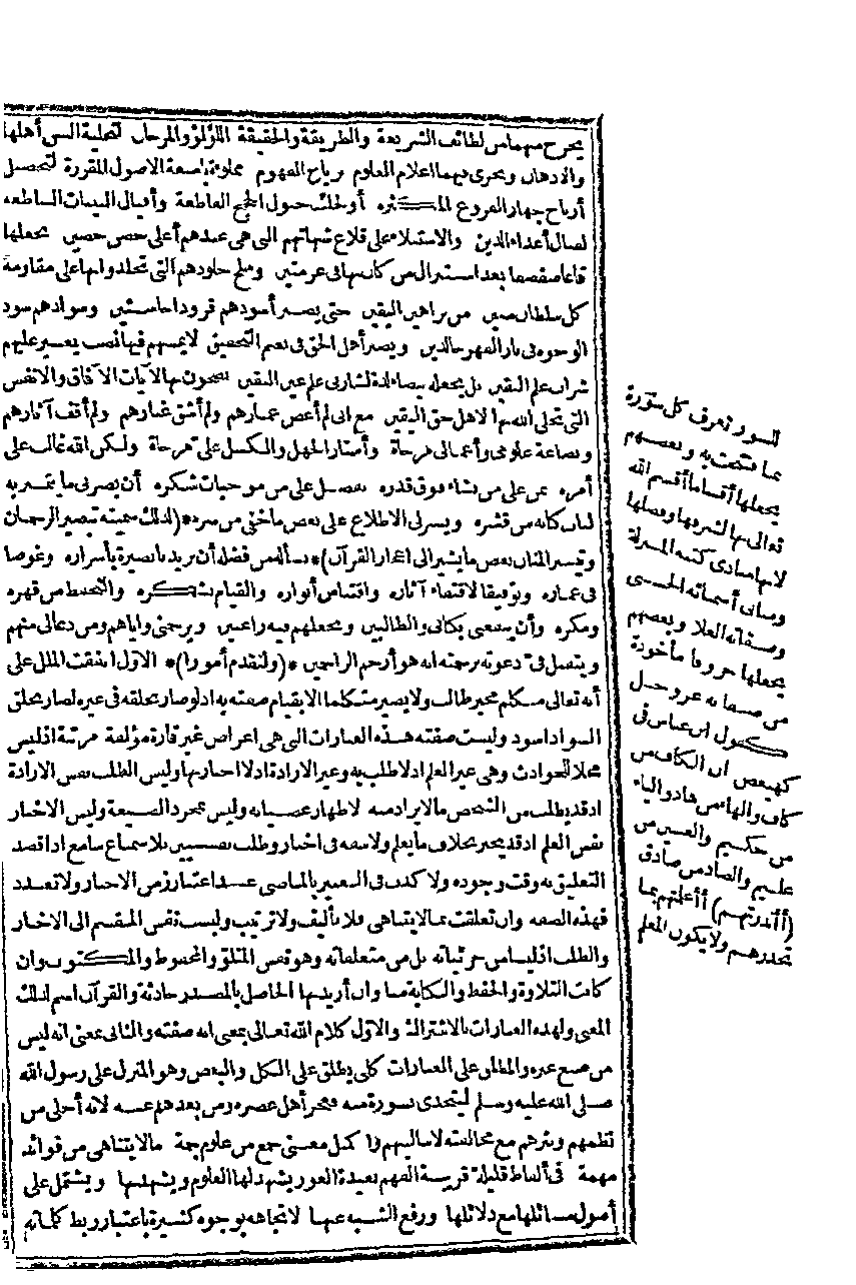 يخرج منهما من لطائف الشريعة والطريقة والحقيقة اللؤلؤ والمرجان لتحلية السن أهلها
والاذهان ويجرى فيهما اعلام العلوم برياح الفهوم مملوءة بامتعة الاصول المقررة لتحصل
أرباح جهاز الفروع المتكثره أو فلك خيول الحجج القاطعة وأفيال البينات الساطعه
لقتال أعداء الدين والاستيلاء على قلاع شبهاتهم التى هى عندهم أعلى حصن حصين بجعلها
قاعا صفصفا بعد استنزال من كان بها فى عرمتين وملخ جلودهم التى تجلدوا بها على مقاومة
كل سلطان مبين من براهين اليقين حتى يصير أسودهم قرودا خاسئين وسوادهم سود
الوجوه فى نار القهر خالدين ويصير أهل الحق فى نعيم التحقيق لا يمسهم فيها نصب يعسر عليهم
شراب علم اليقين بل يجعله بيضاء لذة لشاربى علم عين اليقين يفجرون بها الآيات الآفاق والانفس
التى تجلى الله بها لاهل حق اليقين مع انى لم أغص غمارهم ولم أشق غبارهم ولم أقف آثارهم
وبضاعة علومى وأعمالى مزجاة وأستار الجهل والكسل على مرخاة ولكن الله غالب على
أمره يمن على من يشاء فوق قدره بفضل على من موجبات شكره أن يصرنى ما يتميز به
لباب كتابه من قشره ويسر لى الاطلاع على بعض ما خفى من سره *(لذلك سميته تبصير الرحمان
وتيسير المنان بعض ما يشير الى اعجاز القرآن)* نسأله من فضله أن يزيدنا بصيرة بأسراره وغوصا
فى غماره وتوفيقا لاقتفاء آثاره واقتباس أنواره والقيام بشكره والتحفظ من قهره
ومكره وأن ينفعنى بكتابى والطالبين ويجعلهم فيه راغبين ويرحمنى واياهم ومن دعا لى منهم
ويتفضل فى دعوته برحمته انه هو أرحم الراحمين *(ولنقدم أمورا)* الاول اتفقت الملل على
أنه تعالى متكلم مخبر طالب ولا يصير متكلما الا بقيام صفته به اذ لو صار بخلقه فى غيره لصار بخلق
السواد اسود وليست صفته هذه العبارات التى هى اعراض غير قارة مؤلفة مرتبة اذ ليس
محلا للحوادث وهى غير العلم اذ لا طلب به وغير الارادة اذ لا اخبار بها وليس الطلب نفس الارادة
اذ قد يطلب من الشخص ما لا يراد منه لاظهار عصيانه وليس بمجرد الصيغة وليس الاخبار
نفس العلم اذ قد يخبر بخلاف ما يعلم ولا سفه فى اخبار وطلب نفسيين بلا سماع سامع اذا قصد
التعليق به وقت وجوده ولا كذب فى التعبير بالماضى عند اعتبار زمن الاخبار ولا تعدد
فهذه الصفه وان تعلقت بما لا يتناهى فلا تأليف ولا ترتيب وليست نفس المنقسم الى الاخبار
والطلب اذ ليسا من جزئياته بل من متعلقاته وهو نفس المتلو والمحفوظ والمكتوب وان
كانت التلاوة والحفظ والكتابة منا وان أريد بها الحاصل بالمصدر حادثة والقرآن اسم لذلك
المعنى ولهذه العبارات بالاشتراك والاول كلام الله تعالى بمعنى انه صفته والثانى بمعنى انه ليس
من صنع غيره والمطلق على العبارات كلى يطلق على الكل والبعض وهو المنزل على رسول الله
صلى الله عليه وسلم ليتحدى بسورة منه فعجز أهل عصره ومن بعدهم عنه لانه أحلى من
نظمهم ونثرهم مع مخالفته لاساليبهم فى كل معنى جمع من علوم جمة ما لا يتناهى من فوائد
مهمة فى ألفاظ قليلة قريبة الفهم بعيدة الغور يشهد لها العلوم ويشهد لها ويشتمل على
أصول مسائلها مع دلائلها ورفع الشبه عنها لاتجاهه بوجوه كثيرة باعتبار ربط كلماته
للسور تعرف كل سورة
بما فتتحت به وبعضهم
يجعلها أقساما أقسم الله
تعالى بها لشرفها وفضلها
لانها مبادى كتبه المنزلة
ومبانى أسمائه الحسنى
وصفاته العلا وبعضهم
يجعلها حروفا مأخوذة
من صفاته عز وجل
كقول ابن عباس فى
كهيعص ان الكاف من
كاف والهاء من هاد والياء
من حكيم والعين من
عليم والصاد من صادق
(أأنذرتهم) أأعلمتهم بما
تحذرهم ولا يكون المعلم